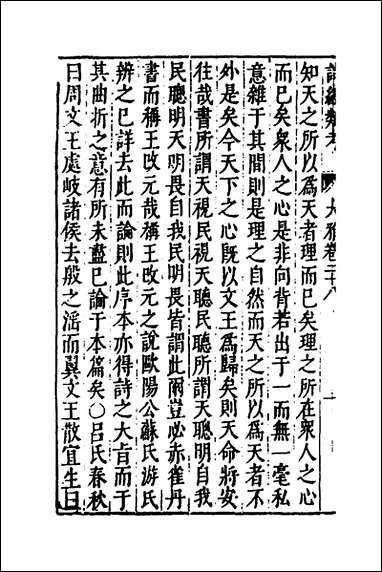 詩經類考 大雅卷二十八
知天之所以爲天者理而已矣理之所在衆人之心
而已矣衆人之心是非向背若出于一而無一毫私
意雜于其間則是理之自然而天之所以爲天者不
外是矣今天下之心既以文王爲歸矣則天命將安
往哉書所謂天視民視天聽民聽所謂天聰明自我
民聰明天明畏自我民明畏皆謂此爾豈必赤雀丹
書而稱王改元哉稱王改元之說歐陽公蘇氏游氏
辨之已詳去此而論則此序本亦得詩之大旨而于
其曲折之意有所未盡已論于本篇矣〇呂氏春秋
曰周文王處岐諸侯去殷之滛而翼文王散宜生曰